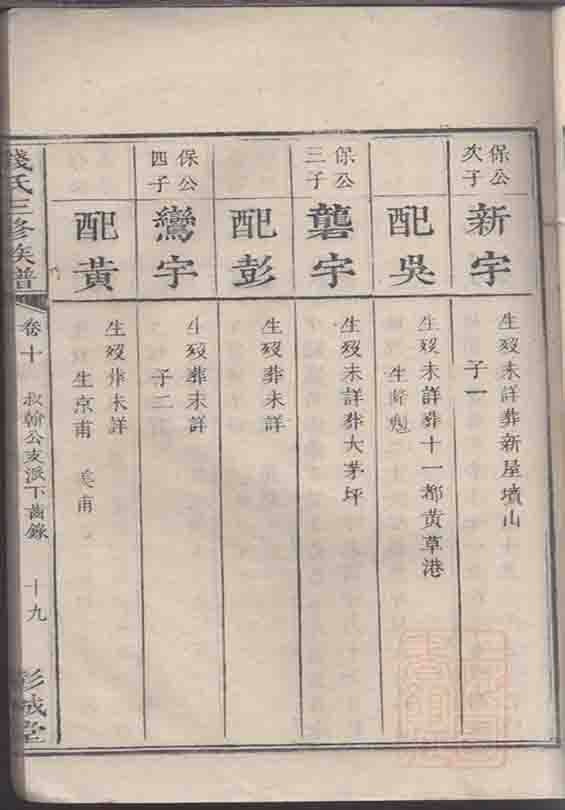 保公
次子
新宇
生歿未詳葬新屋墳山
子一
配吳
生歿未詳葬十一都黄草港
生
保公
三子
礱宇
生歿未詳葬大茅坪
配彭
生歿葬未詳
保公
四子
鸞宇
生歿葬未詳
子二
配黄
生歿葬未詳
生京甫 美甫
錢氏三修族譜
卷十
叔翰公支派下齒錄
十九
彭城堂